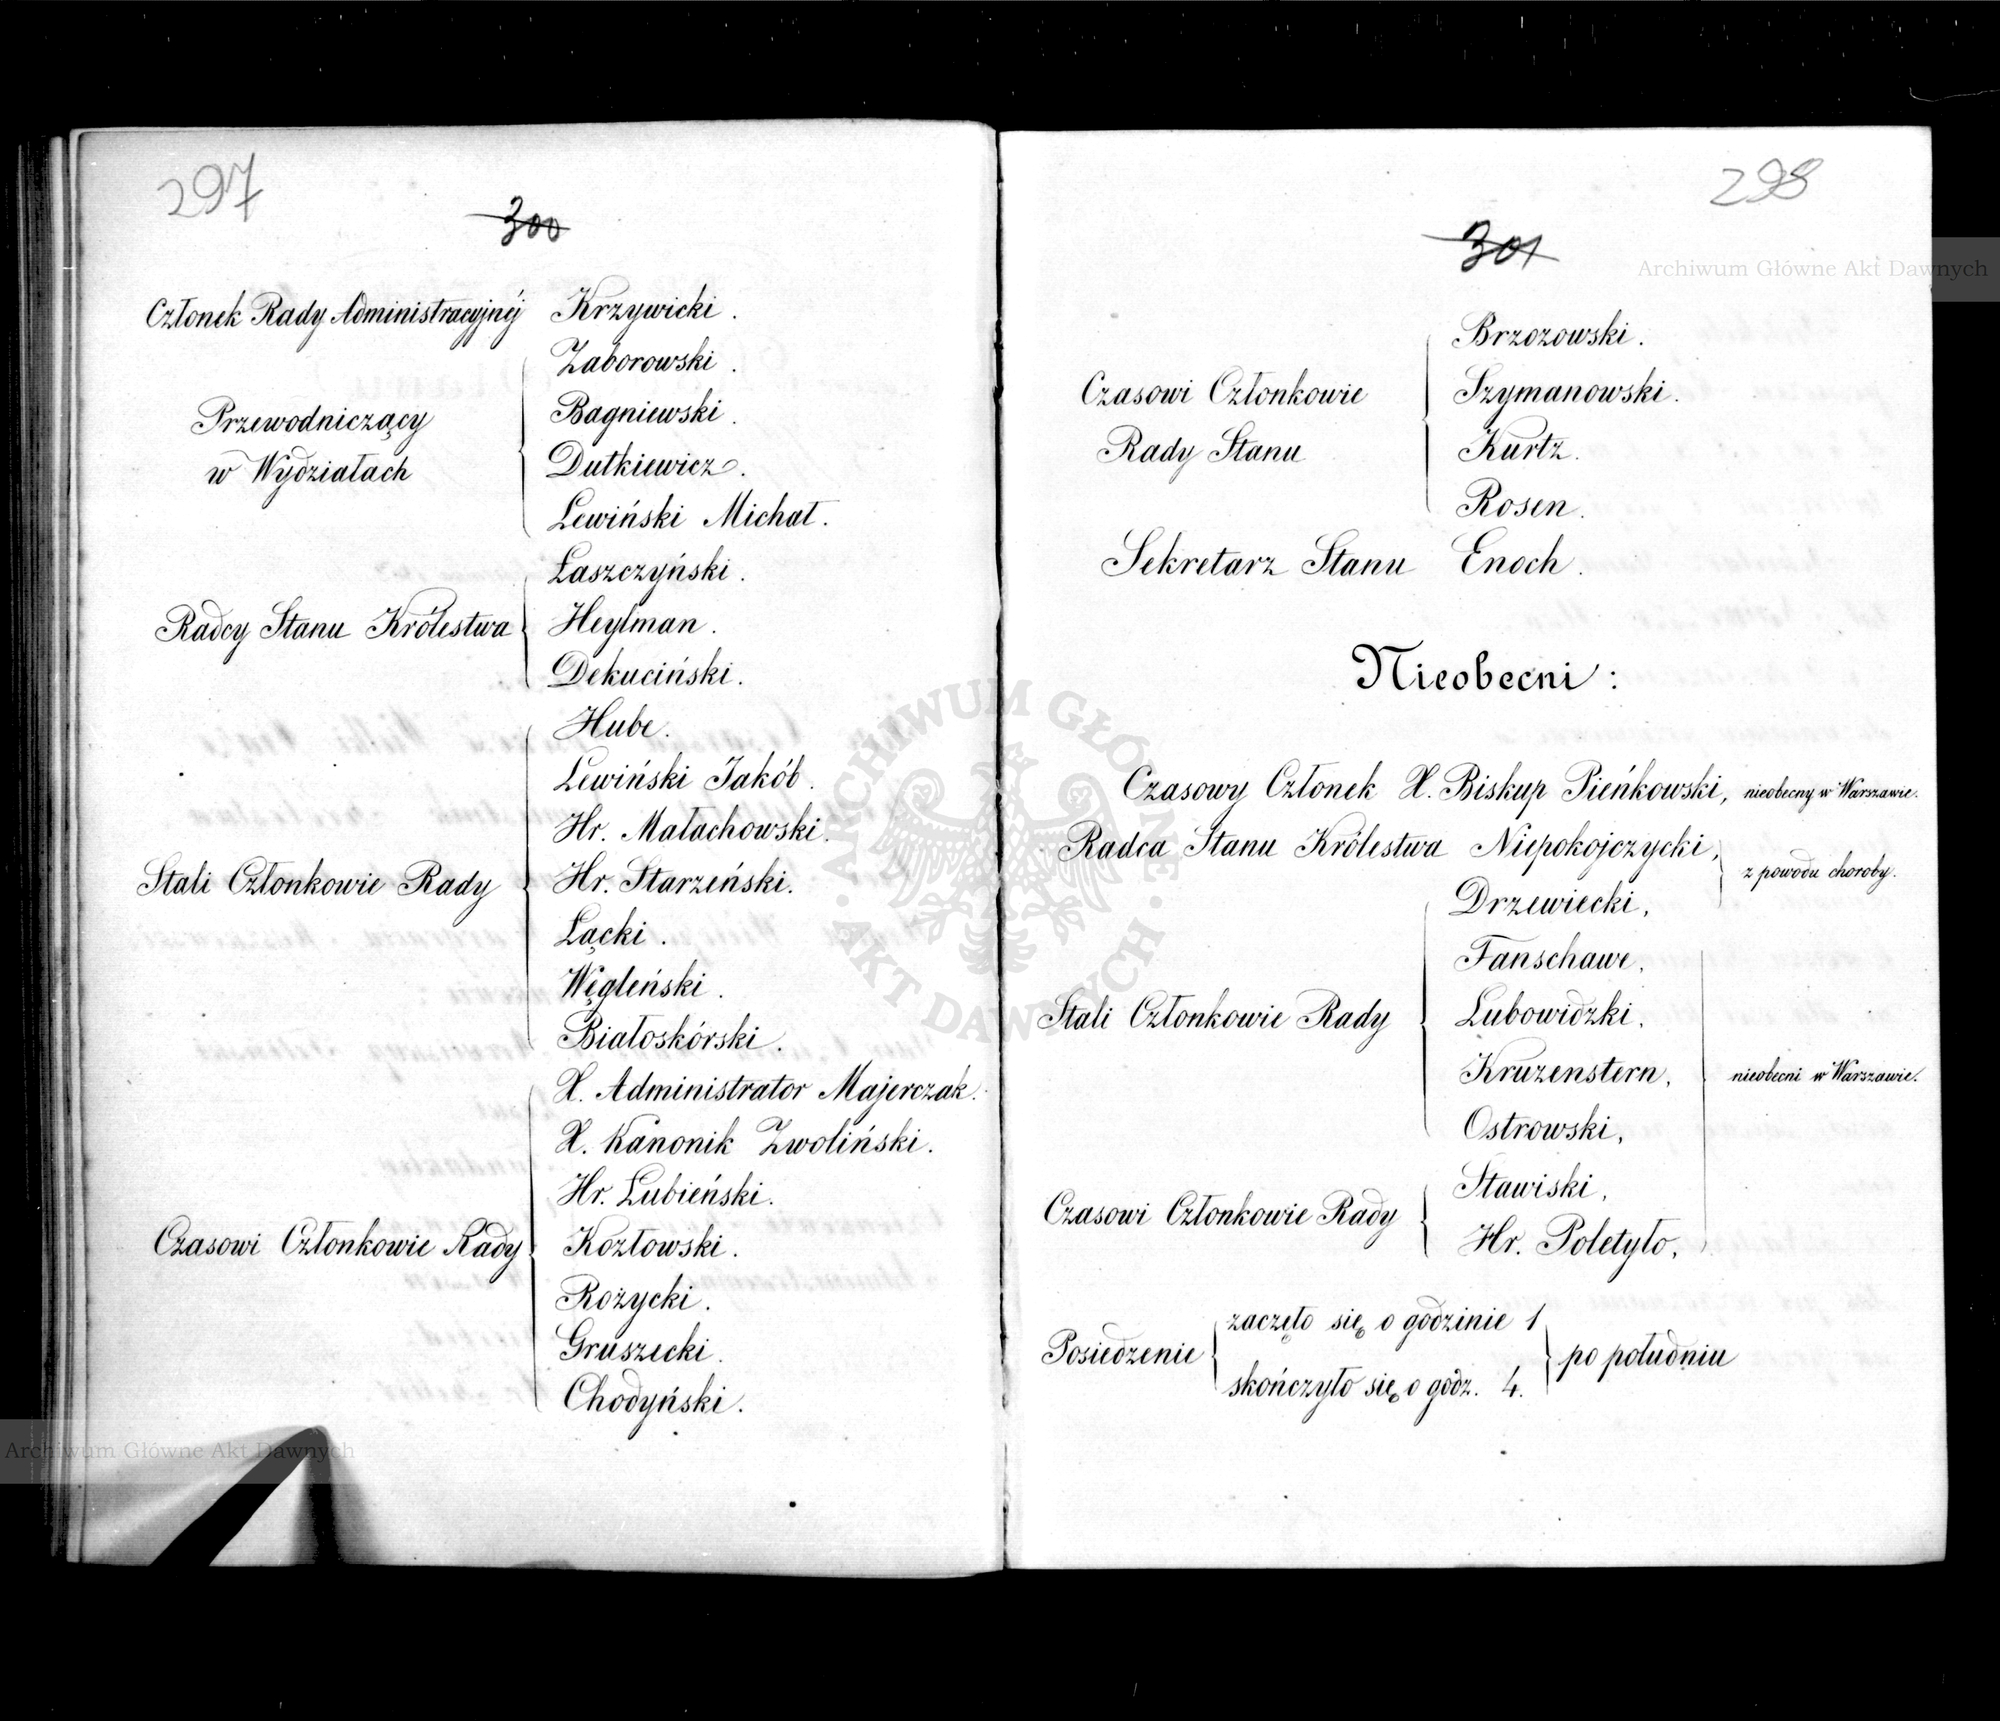 297
300
Członek Rady Administracyjnéj Krzywicki.
Zaborowski.
Przewodniczący
w Wydziałach
Bagniewski.
Dutkiewicz.
Lewiński Michał.
Radcy Stanu Królestwa
Łaszczyński.
Heylman.
Dekuciński.
Stali Członkowie Rady
Hube.
Lewiński Jakób.
Hr. Małachowski.
Hr. Starzeński.
Łącki.
Węgleński.
Białoskórski.
Czasowi Członkowie Rady
X. Administrator Majerczak.
X. Kanonik Zwoliński.
Hr. Łubieński.
Kozłowski.
Rożycki.
Gruszecki.
Chodyński.
Archiwum Główne Akt Dawnych
298
301
Archiwum Główne Akt Dawnych
Czasowi Członkowie
Rady Stanu
Brzozowski.
Szymanowski.
Kurtz.
Rosen.
Sekretarz Stanu Enoch.
Nieobecni:
Czasowy Członek X. Biskup Pieńkowski, nieobecny w Warszawie.
Radca Stanu Królestwa Niepokojczycki,
z powodu choroby.
Stali Członkowie Rady
Drzewiecki,
Fanschawe,
Lubowidzki,
Kruzenstern,
nieobecni w Warszawie.
Ostrowski,
Czasowi Członkowie Rady
Stawiski,
Hr. Poletyło,
Posiedzenie
zaczęło się o godzinie 1
skończyło się o godz. 4.
po południu
ARCHIWUM GŁÓWNE · AKT DAWNYCH ·